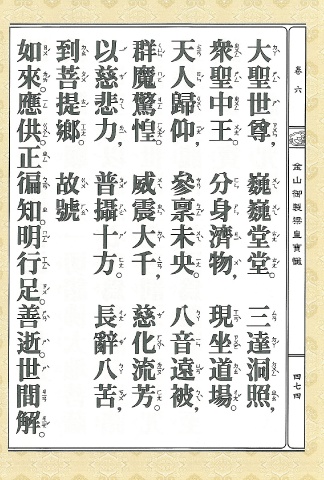 卷六
金山御製梁皇寶懺
四七四
大聖世尊，巍巍堂堂。三達洞照，
衆聖中王。分身濟物，現坐道場。
天人歸仰，參稟未央。八音遠被，
群魔驚惶。威震大千，慈化流芳。
以慈悲力，普攝十方。長辭八苦，
到菩提鄉。故號
如來。應供。正徧知。明行足。善逝。世間解。